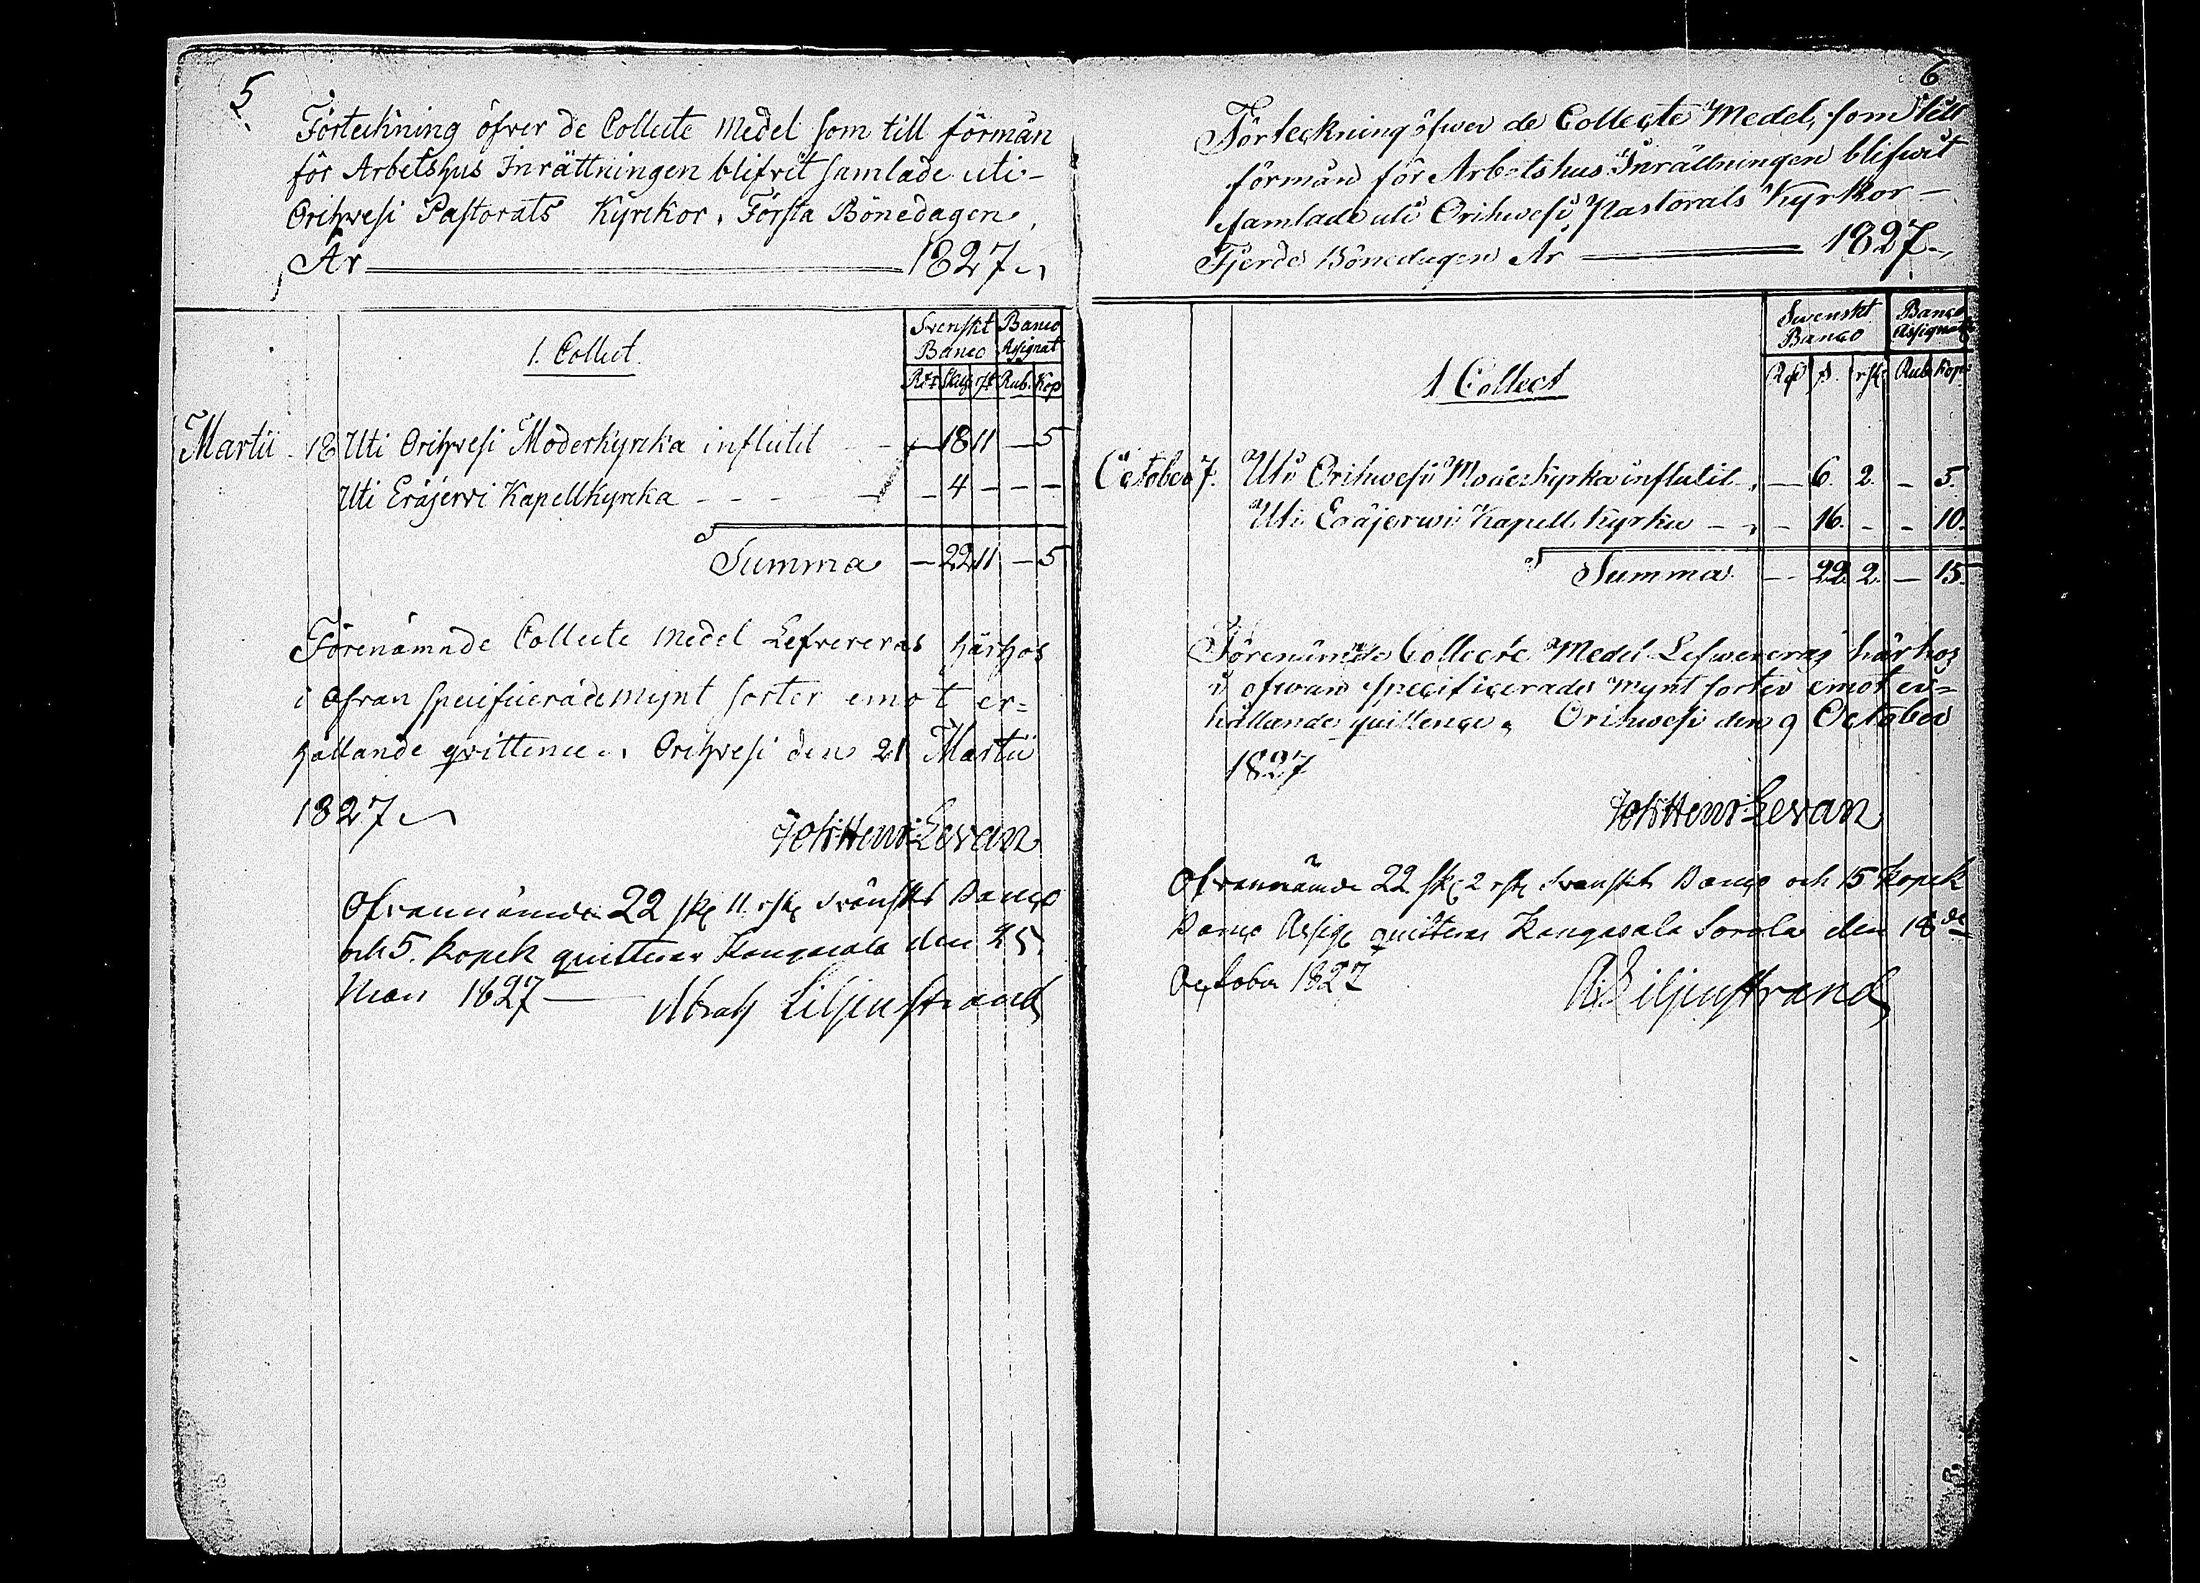 5
Förteckning öfver de Collecte Medel som till förmån
för Arbetshus Inrättningen blifvit samlade uti-
Orihvesi Pastorats Kyrckor, Första Bönedagen,
År 1827
1. Collect.
Svenskt Banco
Banco Assignat
Rdr Skill. rst. Rub. Kop
Martii 18 Uti Orihvesi Moderkyrcka influtit - 18 11 - 5
Uti Eräjervi Kapellkyrcka - - - - 4 - - -
Summa - 22 11 - 5
Förenämnde Collecte Medel Lefvereras härhos
i ofvan specificerade mynt sorter emot er=
hållande qvittence. Orihvesi den 21 Martii
1827
Joh: Henr: Levan
Ofvannämnde 22 sk 11 rst Svenskt Banco
och 5. kopek quitteras Kangasala den 25
Mars 1827 Abrah Liljenstrand
6
Förteckning öfwer de Collecte Medel, som till
förmån för Arbetshus Inrättningen blifwit
samlade uti Orihwesi Pastorats Kyrkor -
Fjerde Bönedagen År 1827
Swenskt Banco
Banco Assignat
Rd s. rst. Rub Kop
1 Collect
October 7. Uti Orihwesi Moderkyrka influtit - 6. 2. - 5.
Uti Eräjerwi Kapell Kyrka - - - 16. - - 10.
Summa - 22 2. - 15.
Förenämnde Collecte Medel Lefwereras härhos
i ofwan specificerade mynt sorter emot er=
hållande quittence. Orihwesi den 9 October
1827
Joh: Henr: Levan
Ofvannämde 22 sk 2 rst Svenskt Banco och 15 kopek
Banco Assig quitteras Kangasala Sorola den 18de
October 1827
A: Liljenstrand